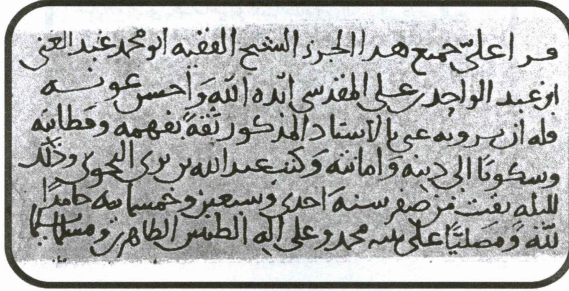 قرا علي جميع هذا الجزء الشيخ الفقيه ابو محمد عبد الغني
ابن عبد الواحد بن علي المقدسي ايده الله وأحسن عونه
فله ان يرويه عني بالاسناد المذكور ثقة بفهمه وفطانته
وسكونًا الى دينه وامانته وكتب عبد الله بن بري النحوي وذلك
لليله بقت من صفر سنه احدى وسبعين وخمسمايه حامدًا
لله ومصليًا على نبيه محمد وعلى اله الطيبين الطاهرين ومسلما